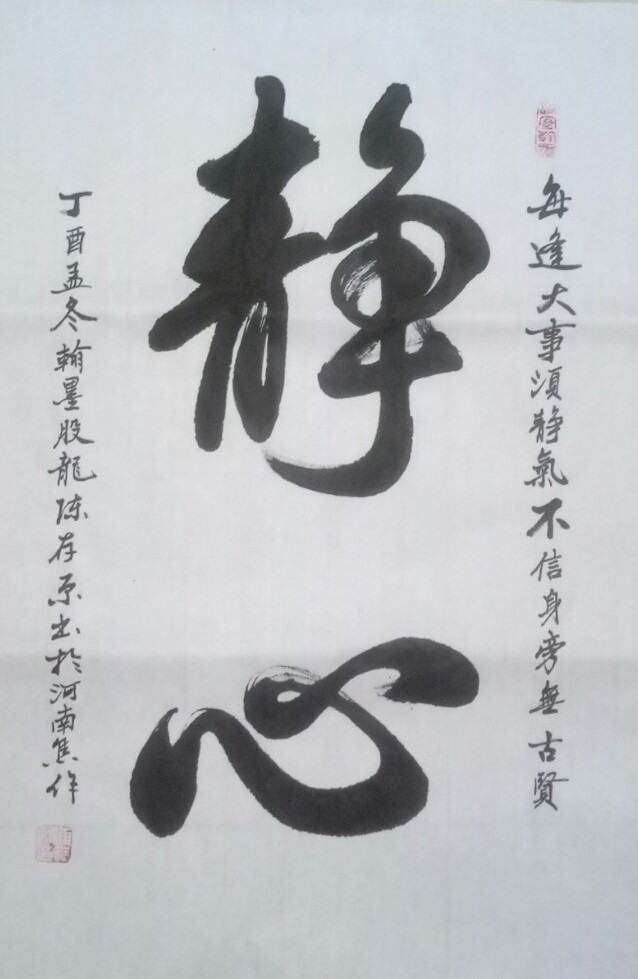 每逢大事須静氣不信身旁無古賢
静心
丁酉孟冬翰墨股龍陈存原书於河南焦作